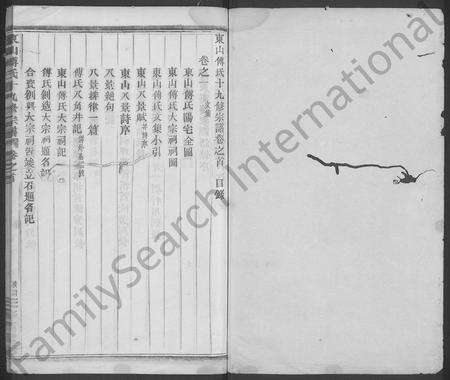 東山傅氏十九修宗譜卷之首 目錄
卷之一 文集
東山傅氏陽宅全圖
東山傅氏大宗祠祠圖
東山傅氏文集小引
東山八景賦
東山八景詩序
八景絶句
八景排律一篇
傅氏八角井記
東山傅氏大宗祠記
傅氏創造大宗祠題名記
合衆創興大宗祠告竣立石題名記
FamilySearch International